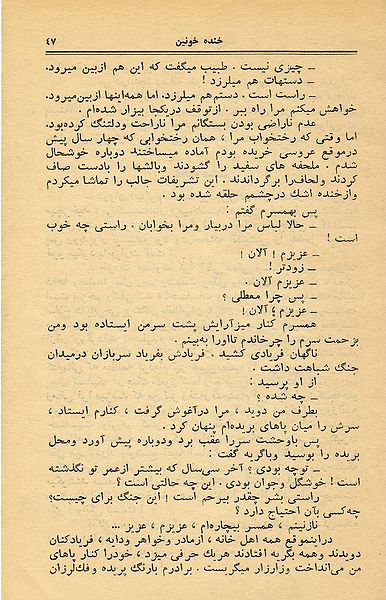 خنده خونین
۴۷
ــ چیزی نیست . طبیب میگفت که این هم ازبین میرود.
ــ دستهات هم میلرزد !
ــ راست است . دستم هم میلرزد. اما همه اینها ازبین میرود.
خواهش میکنم مرا راه ببر . ازتوقف دریکجا بیزار شده ام .
عدم ناراضی بودن بستگانم مرا ناراحت ودلتنگ کرده بود.
اما وقتی که رختخواب مرا ، همان رختخوابی که چهار سال پیش
درموقع عروسی خریده بودم آماده میساختند دوباره خوشحال
شدم . ملحفه های سفید را گشودند وبالشها را بادست صاف
کردند ولحاف را برگرداندند . این تشریفات جالب را تماشا میکردم
وازخنده اشك درچشمم حلقه شده بود .
پس بهمسرم گفتم :
ــ حالا لباس مرا دربیار ومرا بخوابان . راستی چه خوب
است !
ــ عزیزم ! آلان !
ــ زودتر !
ــ عزیزم آلان .
ــ پس چرا معطلی ؟
ــ عزیزم ؛ آلان !
همسرم کنار میزآرایش پشت سرمن ایستاده بود ومن
بزحمت سرم را چرخاندم تااورا ببینم .
ناگهان فریادی کشید . فریادش بفریاد سربازان درمیدان
جنگ شباهت داشت .
از او پرسید :
ــ چه شده ؟
بطرف من دوید ، مرا درآغوش گرفت ، کنارم ایستاد ،
سرش را میان پاهای بریده ام پنهان کرد .
پس باوحشت سررا عقب برد ودوباره پیش آورد ومحل
بریده را بوسید وباگریه گفت :
ــ توچه بودی ؟ آخر سی سال که بیشتر ازعمر تو نگذشته
است ! خوشگل وجوان بودی . این چه حالتی است ؟
راستی بشر چقدر بیرحم است ! این جنگ برای چیست؟
چه کسی بآن احتیاج دارد ؟
نازنینم ، همسر بیچاره ام ، عزیزم ، عزیز ...
دراینموقع همه اهل خانه ، ازمادر وخواهر ودایه ، فریادکنان
دویدند وهمه بگریه افتادند هریك حرفی میزد ، خودرا کنار پاهای
من می انداخت وزارزار میگریست . برادرم بارنگ پریده وفك لرزان